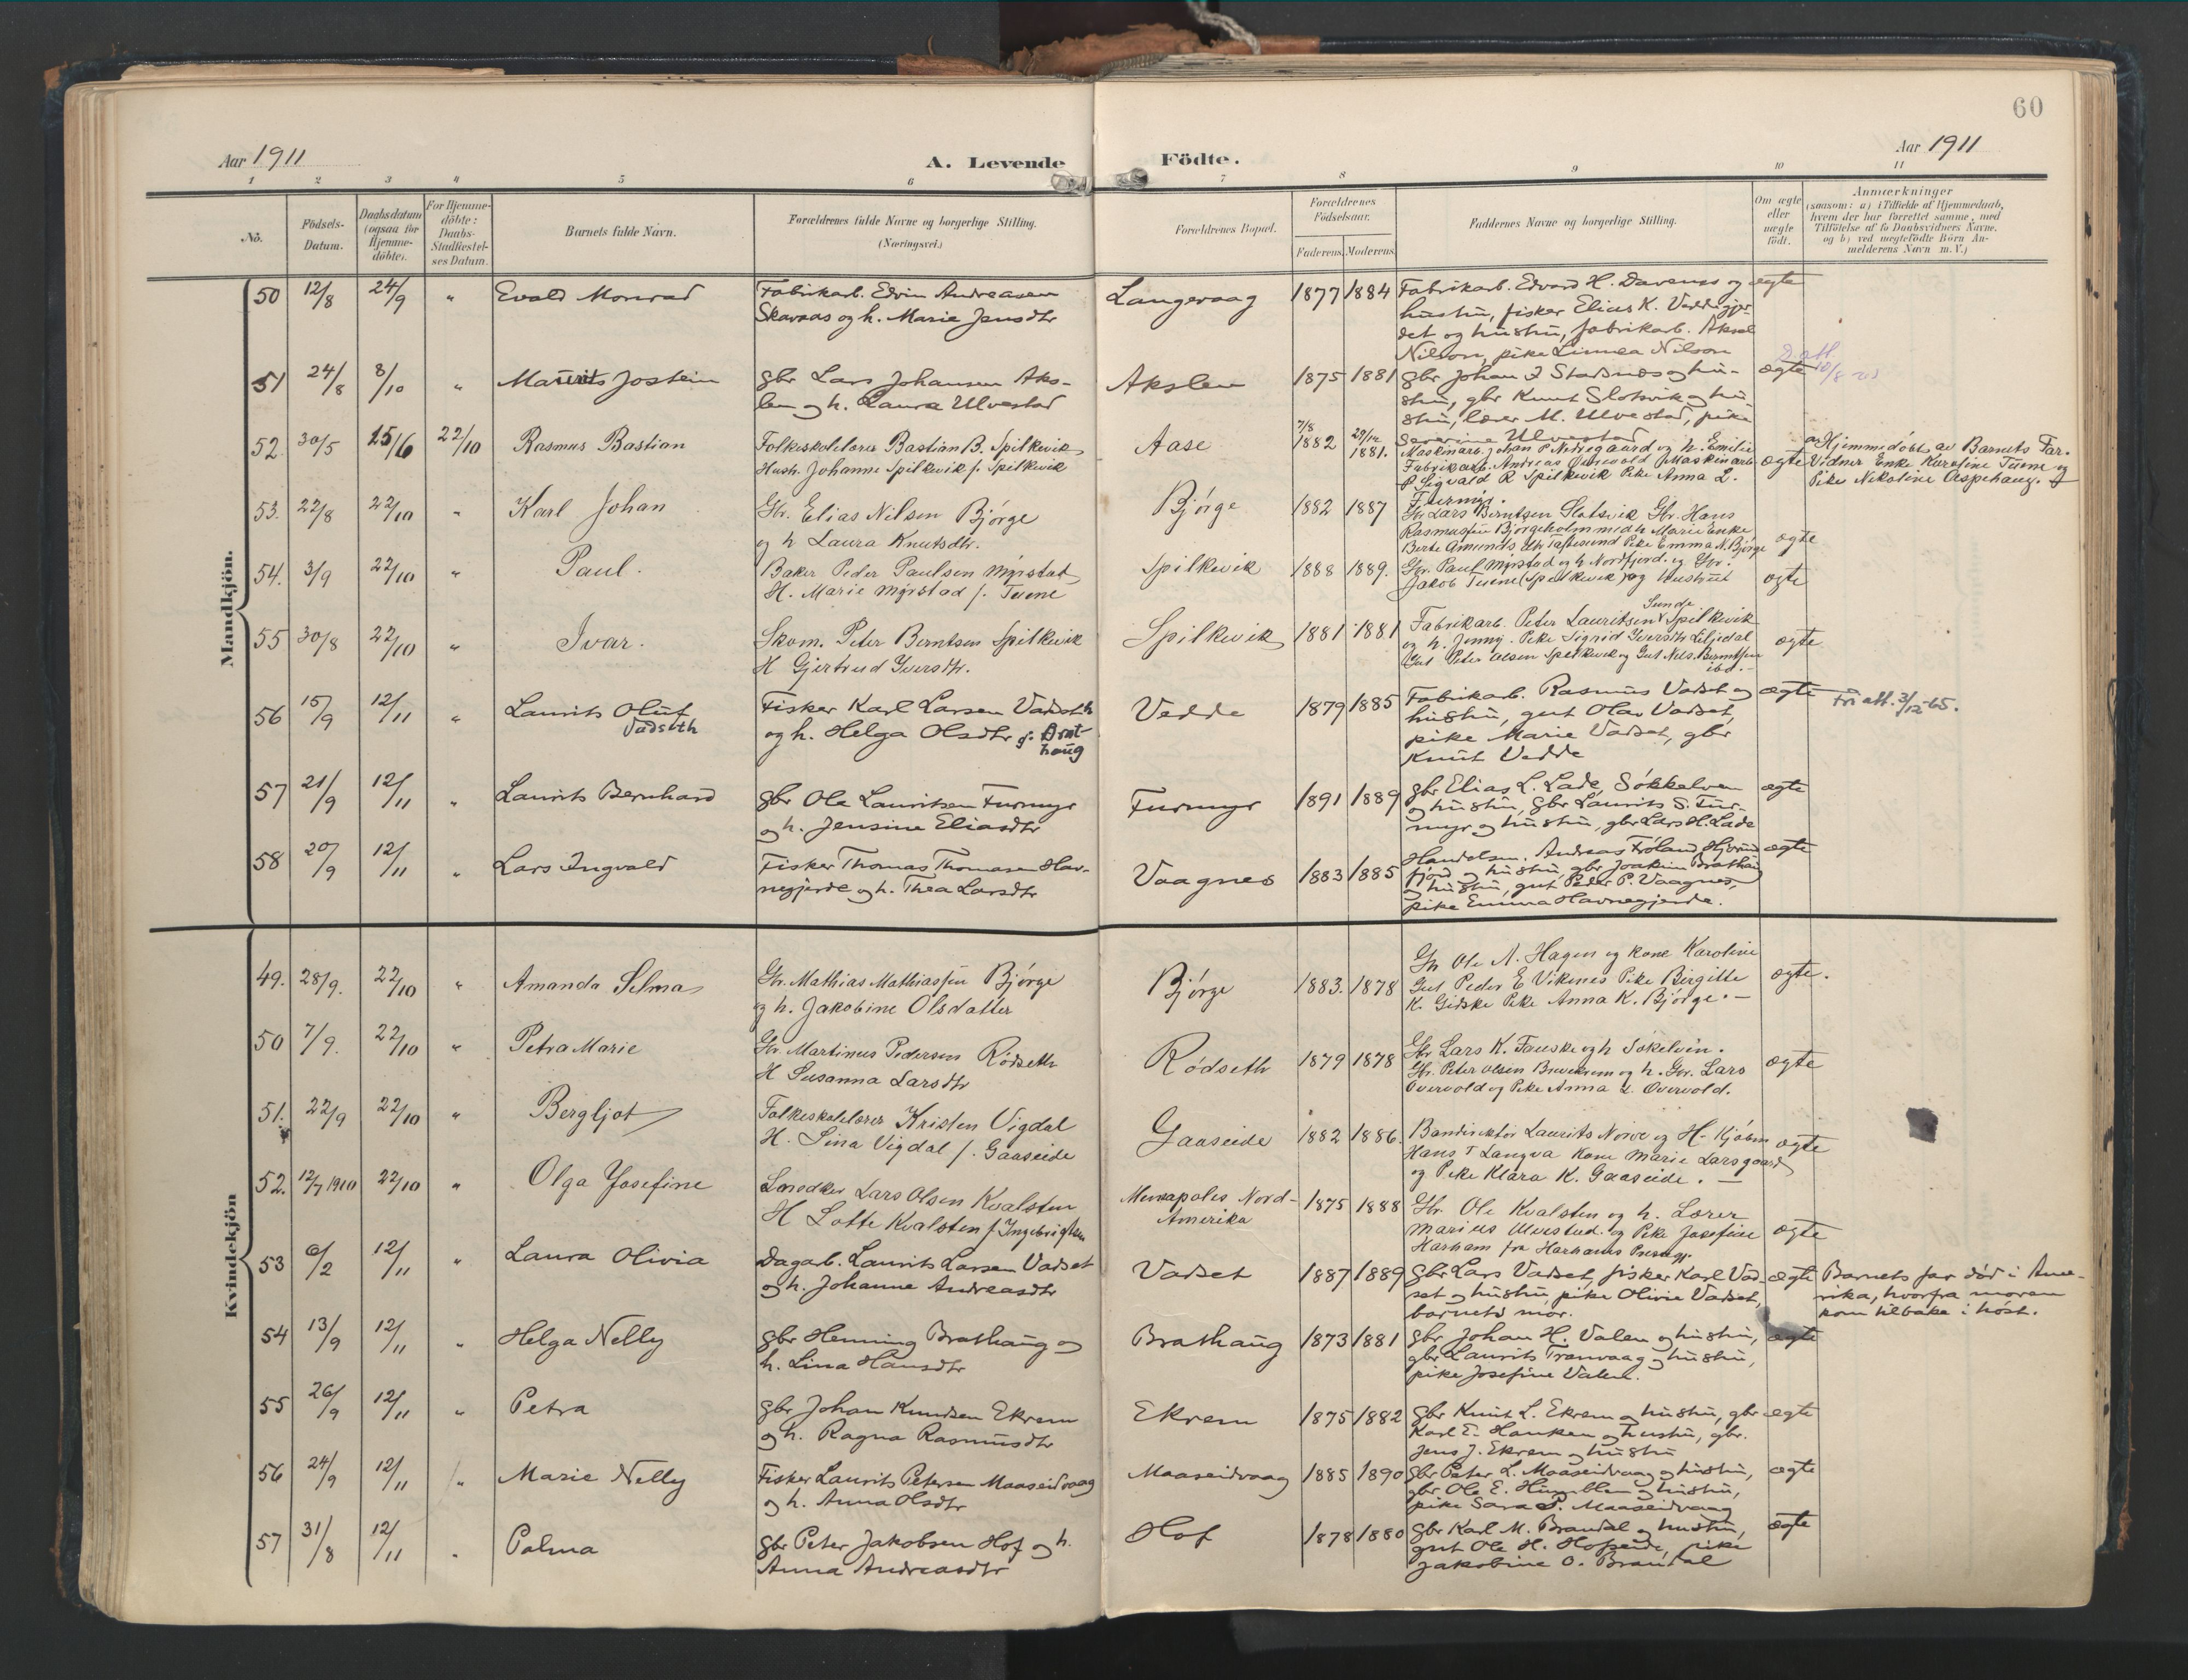 60
Aar 1911
A. Levende Födte.
Aar 1911
1 2 3 4 5 6 7 8 9 10 11
No.
Födsels-Datum.
Daabsdatum (ogsaa for Hjemme-döbte).
For Hjemme-döbte: Daabs-Stadfæstel-ses Datum.
Barnets fulde Navn.
Forældrenes fulde Navne og borgerlige Stilling.
(Næringsvei.)
Forældrenes Bopæl.
Forældrenes Födselsaar.
Faderens. Moderens.
Faddernes Navne og borgerlige Stilling.
Om ægte eller uægte födt.
Anmærkninger
(saasom: a) i Tilfælde af Hjemmedaab,
hvem der har forrettet samme, med
Tilföielse af to Daabsvidners Navne.
og b) ved uægtefödte Börn An-
melderens Navn m. V.)
Mandkjön.
50 12/8 24/9 " Evald Monrad
Fabrikarb. Edvin Andreasen
Skavaas og h. Marie Jensdtr
Langevaag 1877 1884
Fabrikarb. Edvard H. Davenes og
hustru, fisker Elias K. Veddegjer-
det og hustru, fabrikarb. Aksel
Nilson, pike Linnea Nilson
ægte
51 24/8 8/10 " Maurits Jostein
gbr Lars Johansen Aks-
len og h. Laura Ulvestad
Akslen 1875 1881
gbr Johan J Stadsnes og hu-
stru, gbr Knut Slotsvik og hu-
stru, lærer M. Ulvestad, pike
Severine Ulvestad
ægte
52. 30/5 15/6 22/10 Rasmus Bastian
Folkeskolelærer Bastian B. Spilkevik
Hustr. Johanne Spilkevik f. Spilkevik
Aase 7/8 1882 29/12 1881.
Maskinarb. Johan P Nedregaard og h. Emilie
Fabrikarb. Andreas Overvold Maskinarb
P Sigvald R Spilkevik Pike Anna L.
Furmyr.
ægte
a Hjemmedöbt av Barnets Far.
Vidner Enke Karoline Tuene og
Pike Nikoline Aspehaug.
53. 22/8 22/10 " Karl Johan
Gbr. Elias Nilsen Bjørge
og h Laura Knutsdtr.
Bjørge 1882 1887
Gbr Lars Berntsen Slotsvik Gbr. Hans
Rasmussen Bjørgeholm med h Marie Enke
Berte Amunds dtr Taftesund Pike Emma N. Bjørge
ægte
54. 3/9 22/10 " Paul.
Baker Peder Paulsen Myrstad
H. Marie Myrstad f. Tuene
Spilkevik 1888 1889.
Gbr. Paul Myrstad og h Nordfjord. og Gbr.
Jakob Tuene (Spilkevik) og Hustru
ægte
55 30/8 22/10 " Ivar.
Skom. Peter Berntsen Spilkevik
H Gjertrud Iversdtr.
Spilkevik 1881 1881
Sunde
Fabrikarb. Peter Lauritsen Spilkevik
og h. Jenny. Pike Sigrid Iversdtr Liljedal
Gut Peter Olsen Spilkevik og Gut Nils Berntsen
ibd.
ægte
56 15/9 12/11 " Laurits Oluf
Vadseth
Fisker Karl Larsen Vadseth
og h. Helga Olsdtr f. Brat-
haug
Vedde 1879 1885
Fabrikarb. Rasmus Vadset og
hustru, gut Olav Vadset,
pike Marie Vadset, gbr
Knut Vedde
ægte Fri att. 3/12-65.
57 21/9 12/11 " Laurits Bernhard
gbr Ole Lauritsen Furmyr
og h. Jensine Eliasdtr
Furmyr 1891 1889
gbr Elias L. Lade, Søkkelven
og hustru, Gbr Laurits S. Fur-
myr og hustru, gbr Lars H. Lade
ægte
58 20/9 12/11 " Lars Ingvald
Fisker Thomas Thomasen Hav-
negjerde og h. Thea Larsdtr
Vaagnes 1883 1885
Handelsm. Andreas Frøland Hjørund
fjord og hustru, gbr Joakim Brathaug
og hustru, gut Peder P. Vaagnes,
pike Emma Havnegjerde.
ægte
Kvindekjön
49. 28/9. 22/10 " Amanda Selma
Gbr. Mathias Mathiassen Bjørge
og h. Jakobine Olsdatter
Bjørge 1883. 1878
Gbr Ole A. Hagen og kone Karoline
Gut Peder E Vikenes Pike Birgitte
K. Gidske Pike Anna K. Bjørge.
ægte.
50 7/9. 22/10 " Petra Marie
Gbr. Martinus Pedersen Rødseth
H Susanna Larsdtr
Rødseth 1879 1878
Gbr Lars K. Fauske og h Søkelven.
Gbr. Peter Olsen Brevekrem og h. Gbr. Lars
Overvold og Pike Anna L. Overvold.
ægte
51. 22/9 22/10 " Bergljot
Folkeskolelærer Kristen Vigdal
H. Lina Vigdal f. Gaaseide
Gaaseide 1882 1886.
Bandirektør Laurits Norve og H. Kjøbm
Hans T Langva Kone Marie Larsgaard
og Pike Klara K. Gaaseide.
ægte
52. 12/7 1910 22/10 " Olga Josefine
Snedker Lars Olsen Kvalsten
H Lotte Kvalsten f. Ingebrigtsen
Mineapoles Nord-
Amerika
1875 1888
Gbr. Ole Kvalsten og h. Lærer
Marius Ulvestad. og Pike Josefine
Harham fra Harhams Prestegj.
ægte
53 6/2 12/11 " Laura Olivia
Dagarb. Laurits Larsen Vadset
og h. Johanne Andreasdtr
Vadset 1887 1889
gbr Lars Vadset, fisker Karl Vad-
set og hustru, pike Olivie Vadset,
barnets mor.
ægte
Barnets far død i Ame-
rika, hvorfra moren
kom tilbake i høst.
54 13/9 12/11 " Helga Nelly
gbr Henning Brathaug og
h. Lina Hansdtr
Brathaug 1873 1881
gbr Johan H. Valen og hustru,
gbr Laurits Tranvaag og hustru,
pike Josefine Valen.
ægte
55 26/9 12/11 " Petra
gbr Johan Knudsen Ekrem
og h. Ragna Rasmusdtr
Ekrem 1875 1882
gbr Knut L. Ekrem og hustru, gbr
Karl E. Hanken og hustru, gbr.
Jens J. Ekrem og hustru
ægte
56 24/9 12/11 " Marie Nelly
Fisker Laurits Petersen Maaseidvaag
og h. Anna Olsdtr
Maaseidvaag 1885 1890
gbr Peter L. Maaseidvaag og hustru,
gbr Ole E. Humblen og hustru,
pike Sara P. Maaseidvaag
ægte
57 31/8 12/11 " Palma
gbr Peter Jakobsen Hof og h.
Anna Andreasdtr
Hof 1878 1880
gbr Karl M. Brandal og hustru,
gut Ole H. Hofseide, pike
Jakobine O. Brandal
ægte